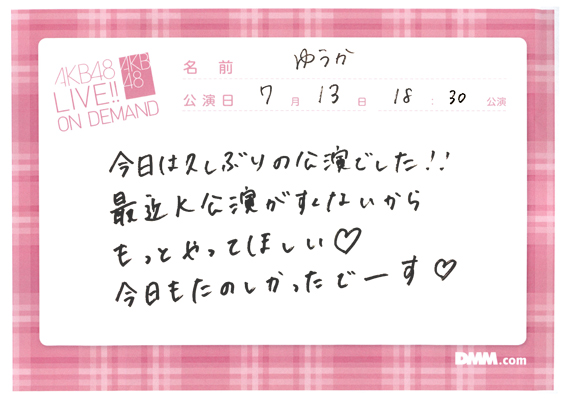 AKB48
LIVE!!
ON DEMAND
AKB
48
名前 ゆうか
公演日 7月 13日 18:30 公演
今日は久しぶりの公演でした!!
最近K公演がすくないから
もっとやってほしい♡
今日もたのしかったでーす♡
DMM.com